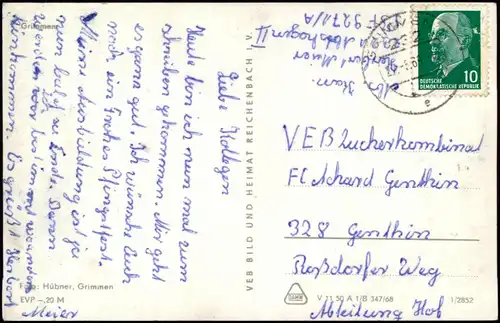 Grimmen
Liebe Kollegen
Heute bin ich nun mal zum
schreiben gekommen. Mir geht
es ganz gut. Ich wünsche Euch
noch ein Frohes Pfingstfest.
Meine Ausbildung ist ja
nun bald zu Ende. Dann
werden wir bestimmt woanders
hinkommen. Es grüßt Herbert
Meier
Foto: Hübner, Grimmen
EVP -,20 M
VEB BILD UND HEIMAT REICHENBACH I. V.
Herbert Meier
DEUTSCHE
DEMOKRATISCHE REPUBLIK
10
VEB Zuckerkombinat
Genthin
328 Genthin
Roßdorfer Weg
Abteilung Hof
V 11 50 A 1/B 347/68
1/2852